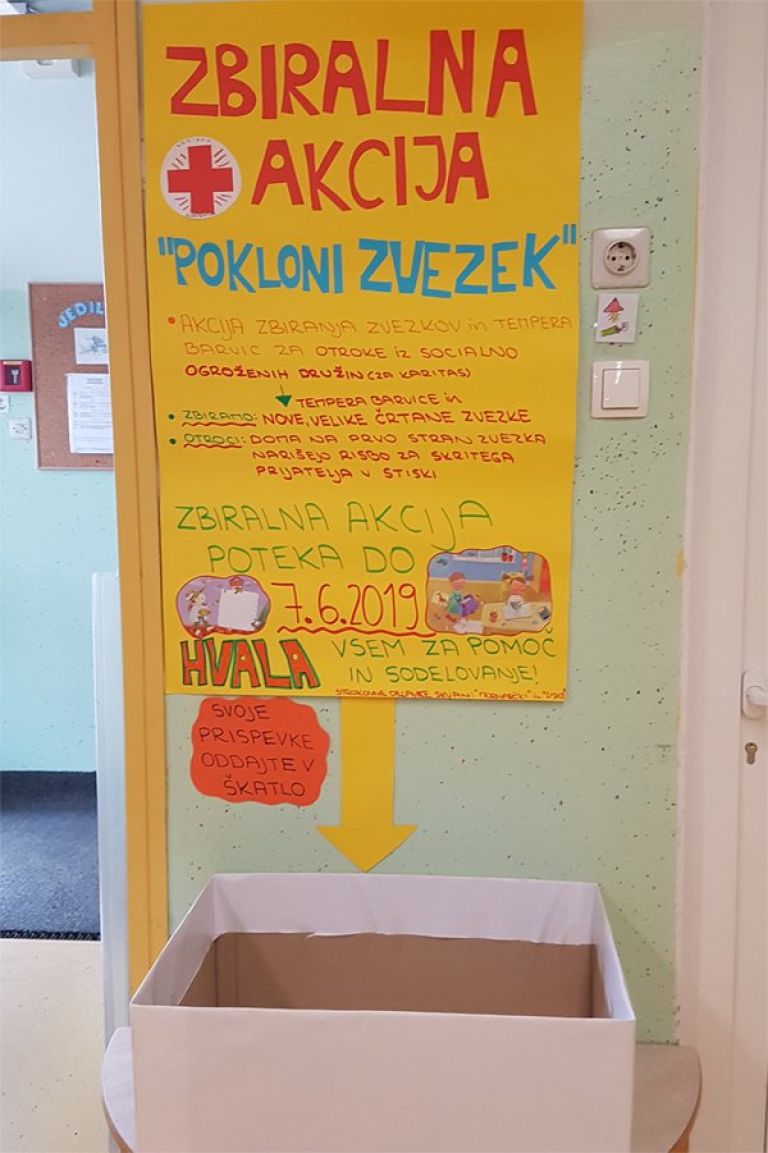 ZBIRALNA
AKCIJA
"POKLONI ZVEZEK"
• AKCIJA ZBIRANJA ZVEZKOV in TEMPERA
BARVIC ZA OTROKE iz SOCIALNO
OGROŽENIH DRUŽIN (ZA KARITAS)
TEMPERA BARVICE in
• ZBIRAMO: NOVE, VELIKE ČRTANE ZVEZKE
• OTROCI: DOMA NA PRVO STRAN ZVEZKA
NARIŠEJO RISBO ZA SKRITEGA
PRIJATELJA V STISKI
ZBIRALNA AKCIJA
POTEKA DO
7.6.2019
HVALA VSEM ZA POMOČ
IN SODELOVANJE!
STROKOVNE DELAVKE
SVOJE
PRISPEVKE
ODDAJTE V
ŠKATLO
JEDIL